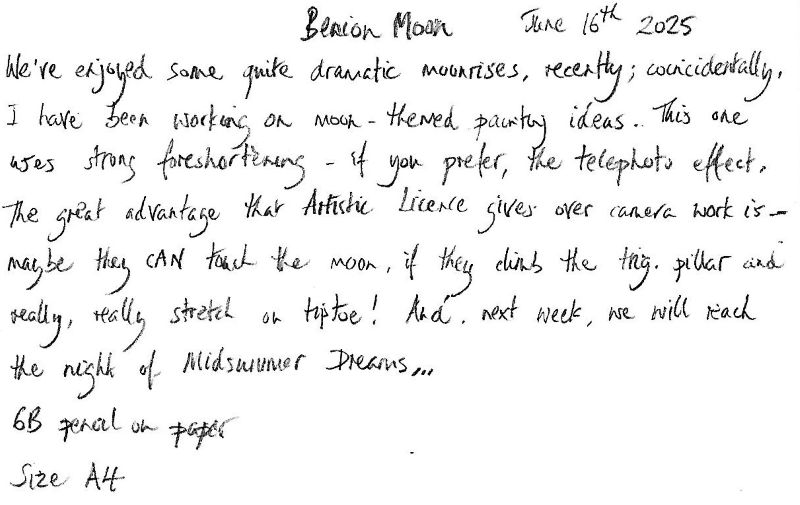 Benion Moon June 16th 2025
We've enjoyed some quite dramatic moonrises, recently; coincidentally,
I have been working on moon-themed painting ideas. This one
uses strong foreshortening - if you prefer, the telephoto effect.
The great advantage that Artistic Licence gives over camera work is -
maybe they CAN touch the moon, if they climb the trig. pillar and
really, really stretch on tiptoe! And, next week, we will reach
the night of Midsummer Dreams...
6B pencil on paper
Size A4